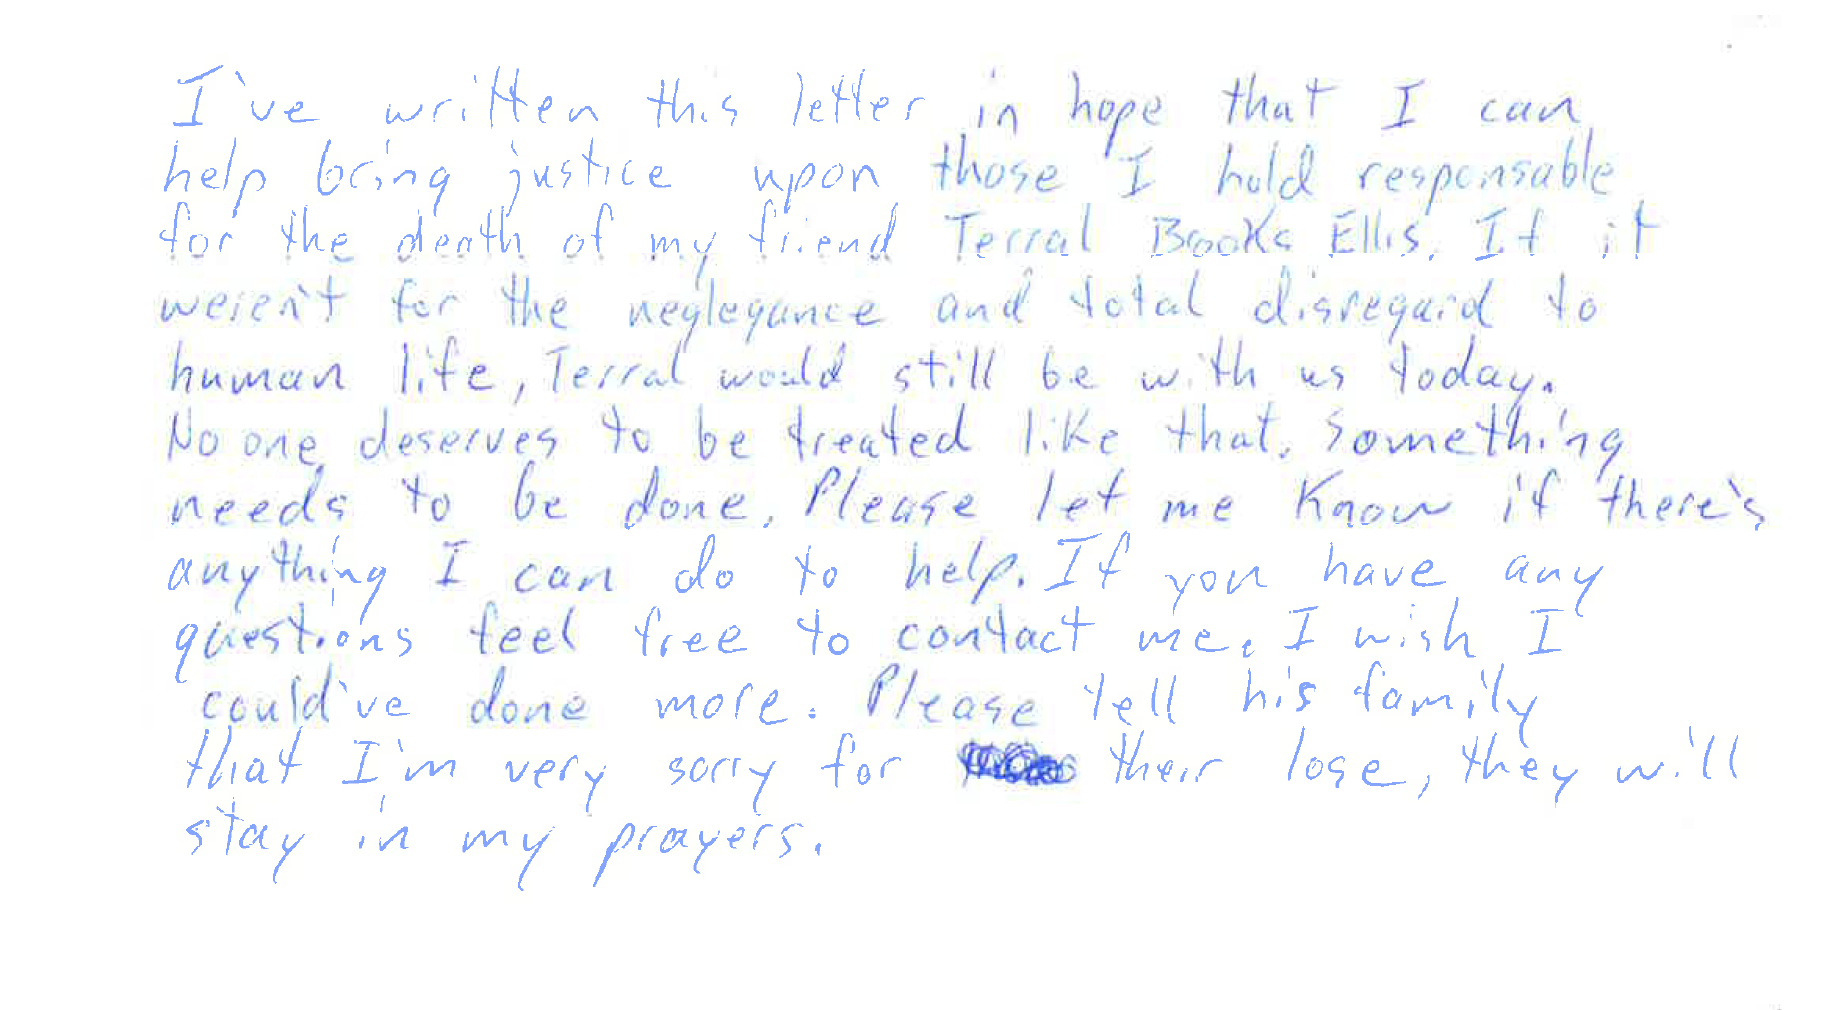 I've written this letter in hope that I can
help bring justice upon those I hold responsable
for the death of my friend Terral Brooks Ellis. If it
weren't for the neglegance and total disregard to
human life, Terral would still be with us today.
No one deserves to be treated like that. Something
needs to be done. Please let me know if there's
anything I can do to help. If you have any
questions feel free to contact me. I wish I
could've done more. Please tell his family
that I'm very sorry for their lose, they will
stay in my prayers.